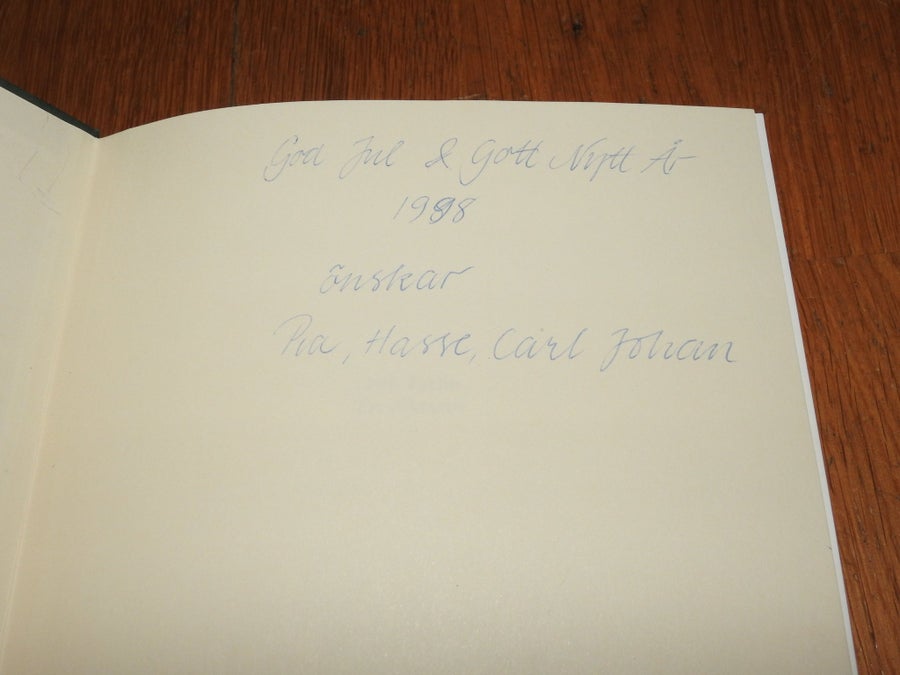 God Jul & Gott Nytt År
1998
önskar
Pia, Hasse, Carl Johan